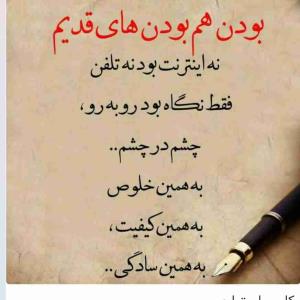 بودن هم بودن های قدیم
نه اینترنت بود نه تلفن
فقط نگاه بود رو به رو،
چشم در چشم..
به همین خلوص
به همین کیفیت،
به همین سادگی..